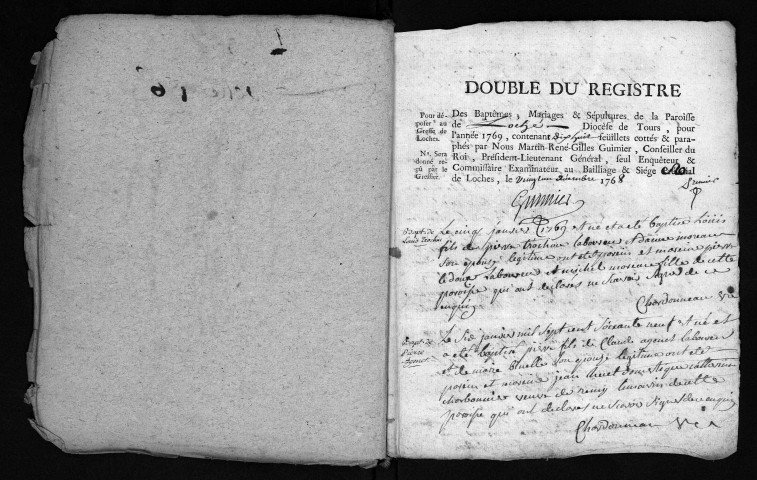 DOUBLE DU REGISTRE
Pour dé-
poser au
Greffe de
Loches.
Nª. Sera
donné re-
çu par le
Greffier.
Des Baptêmes, Mariages & Sépultures de la Paroisse
de Diocèse de Tours, pour
l'année 1769, contenant dix huit feuillets cottés & para-
phés par Nous Martin-René-Gilles Guimier, Conseiller du
Roi, Président-Lieutenant Général, seul Enquêteur &
Commissaire Examinateur au Bailliage & Siége
de Loches, le vingt un décembre 1768
Guimier
Bapt. de
Louis Trochu
Le cinq janvier 1769 est né et a été baptisé Louis
fils de pierre trochu laboureur et d'anne moreau
son épouse legitime ont été parein et mareine pierre
le doux Laboureur et michel moreau fille de cette
paroisse qui ont déclarés ne scavoir signer de ce
enquis
Chardonneau Vic
Bapt. de
Pierre
Le six janvier mil sept cent soixante neuf est né et
a été baptisé pierre fils de Claude laboureur
et de marie son épouse legitime ont été
parein et mareine jean catherine
charbonnier veuve de remy de cette
paroisse qui ont déclarés ne scavoir signer de ce enquis
Chardonneau Vic